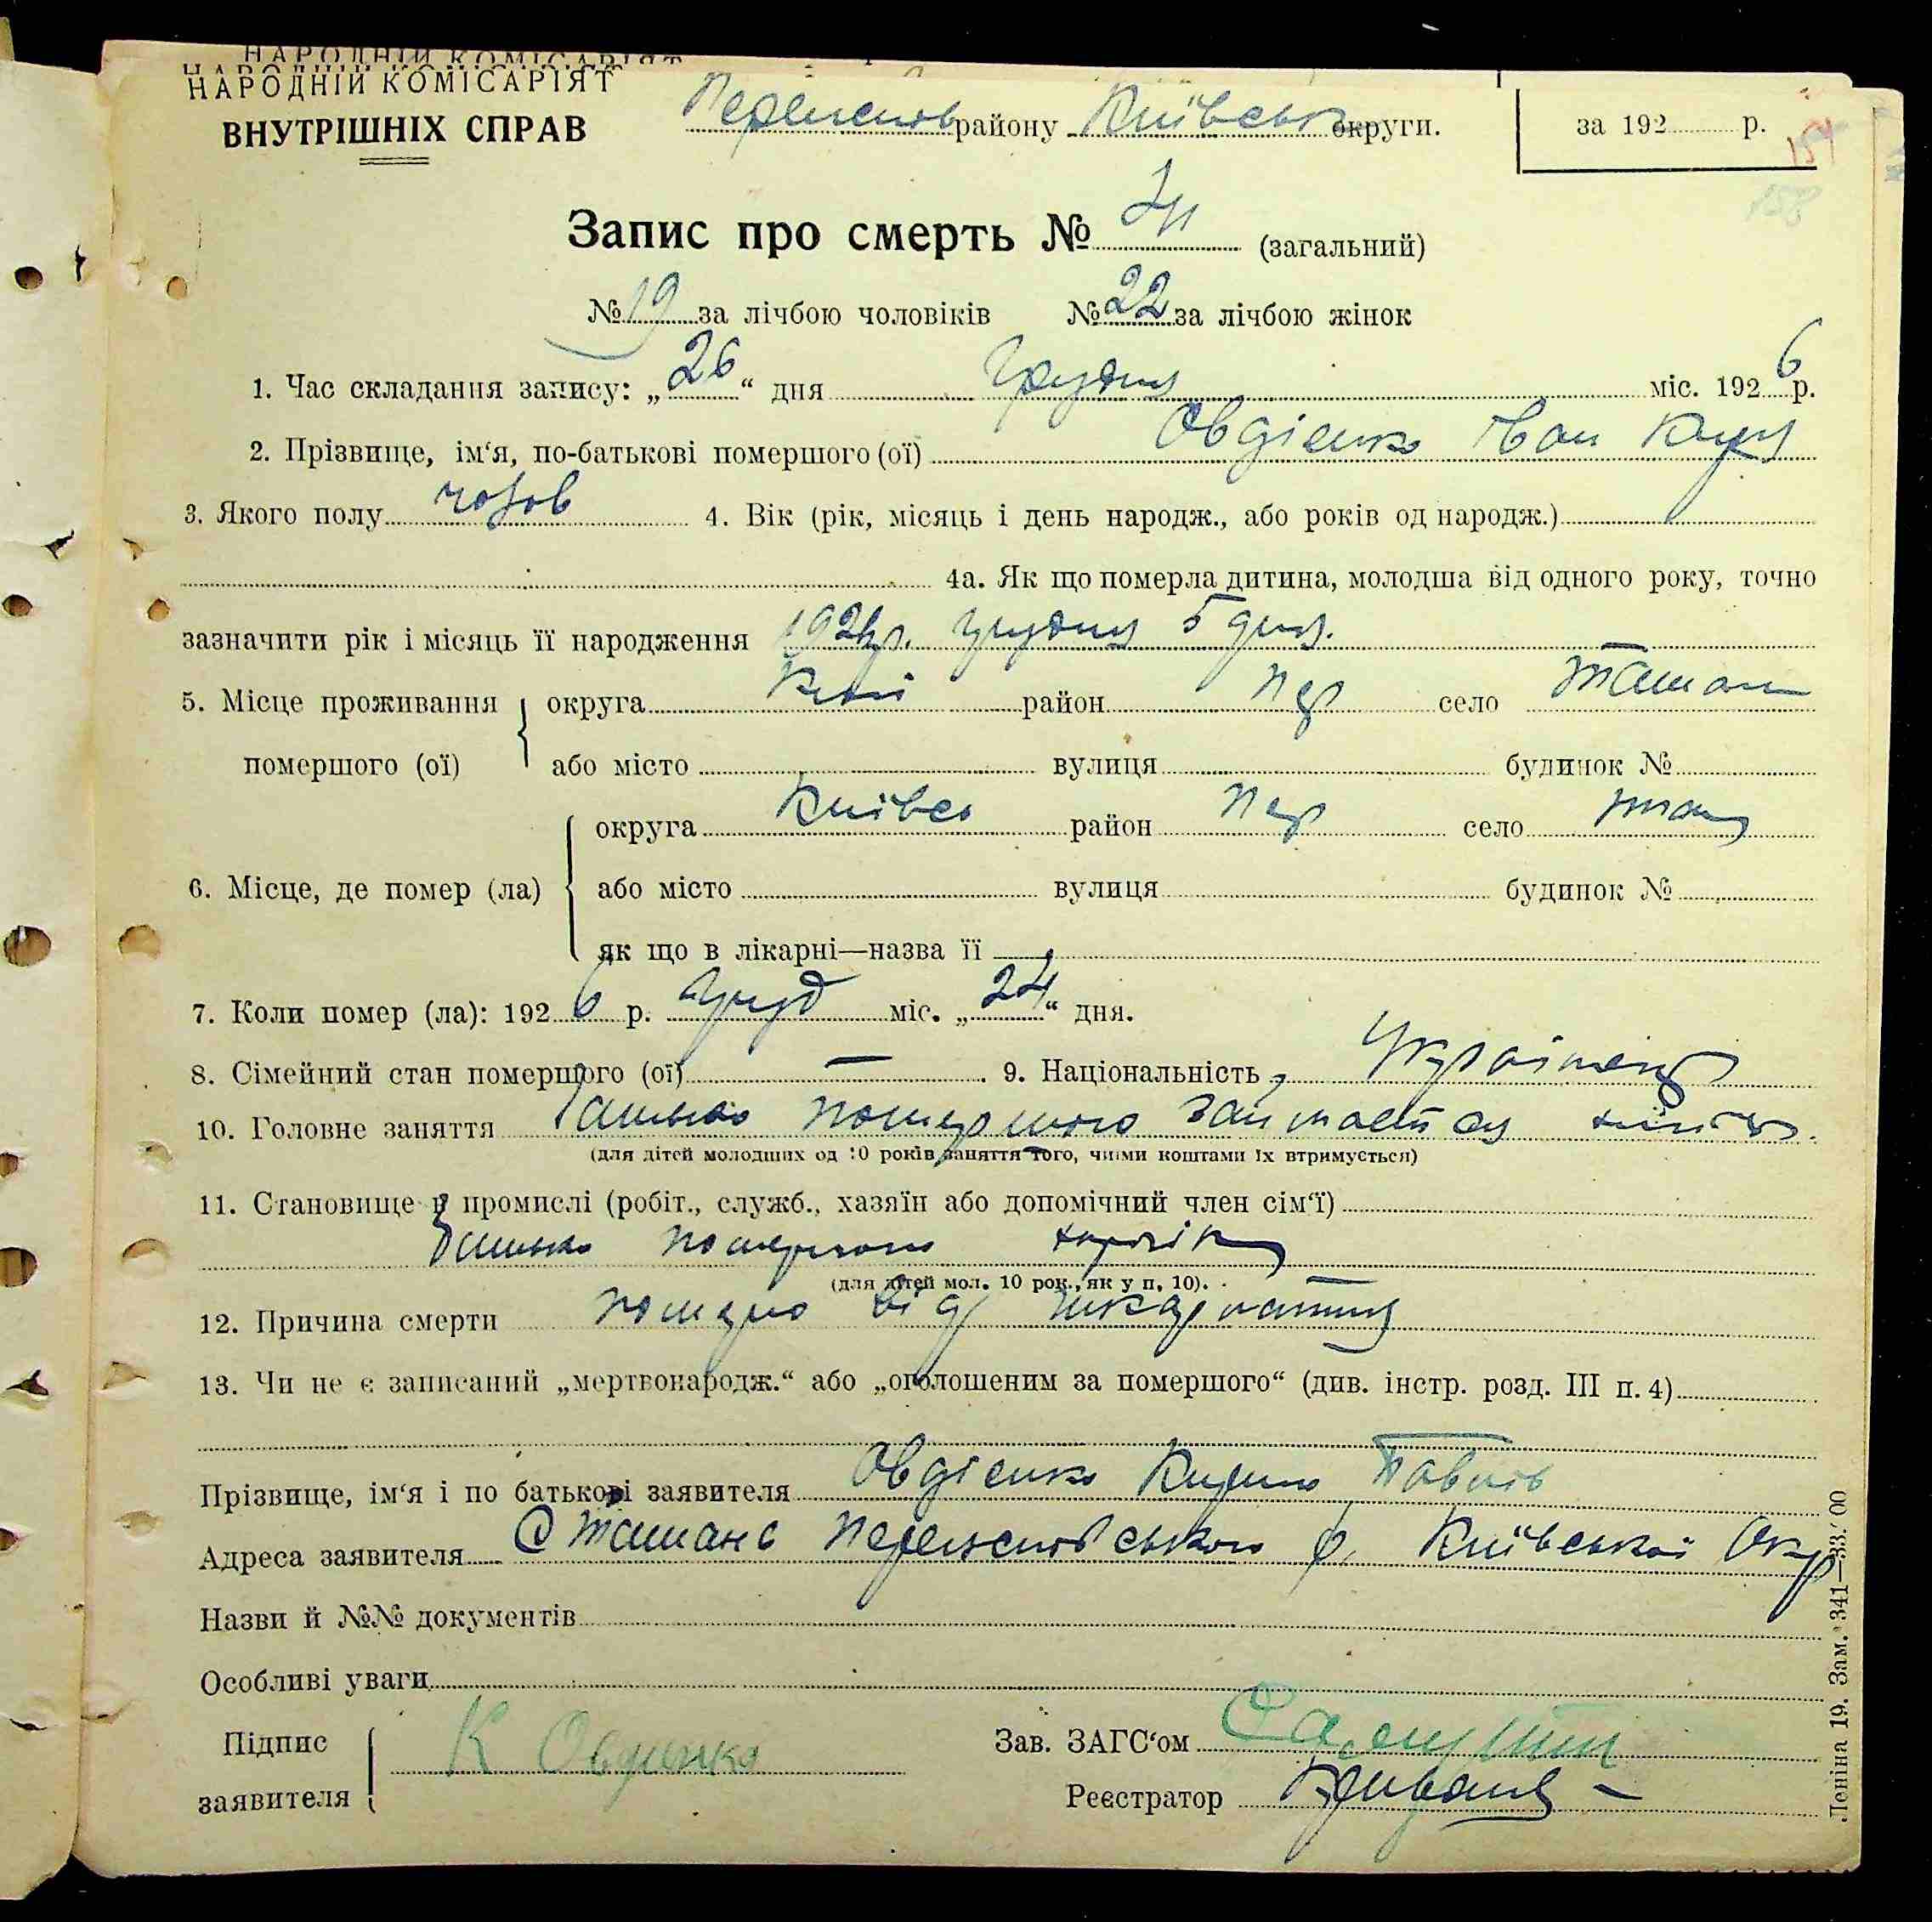 НАРОДНІЙ КОМІСАРІЯТ
НАРОДНІЙ КОМІСАРІЯТ
ВНУТРІШНІХ СПРАВ
району Київськ округи.
за 192 р.
Запис про смерть № (загальний)
№ 19 за лічбою чоловіків № 22 за лічбою жінок
1. Час складання запису: „26“ дня Грудня міс. 1926 р.
2. Прізвище, ім‘я, по-батькові помершого (ої) Овдієнко Іван
3. Якого полу чолов 4. Вік (рік, місяць і день народж., або років од народж.)
4а. Як що померла дитина, молодша від одного року, точно
зазначити рік і місяць її народження грудня 5 дня.
5. Місце проживання округа район Пер село Ташань
помершого (ої) або місто вулиця будинок №
округа Київсь район Пер село
6. Місце, де помер (ла) або місто вулиця будинок №
як що в лікарні—назва її
7. Коли помер (ла): 1926 р. Груд міс. „24“ дня.
8. Сімейний стан помершого (ої) — 9. Національність Українець
10. Головне заняття Батько помершого займається
(для дітей молодших од 10 років заняття того, чиїми коштами їх втримується)
11. Становище в промислі (робіт., служб., хазяїн або допомічний член сім‘ї)
Батько помершого
(для дітей мол. 10 рок., як у п. 10).
12. Причина смерти помер від шкарлатини
13. Чи не є записаний „мертвонародж.“ або „оголошеним за помершого“ (див. інстр. розд. III п. 4)
Прізвище, ім‘я і по батькові заявителя Овдієнко Кирило Павлів
Адреса заявителя С Ташань Переяславського р. Київської Окр
Назви й №№ документів
Особливі уваги
Підпис заявителя К Овдієнко
Зав. ЗАГС‘ом
Реєстратор
Леніна 19. Зам. 341—33.